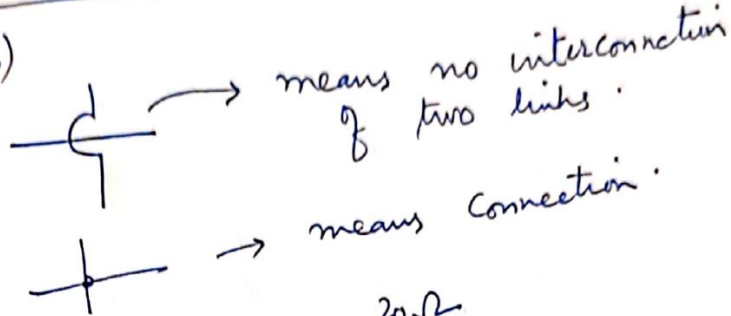 )
means no interconnetion
of two links.
means Connection.